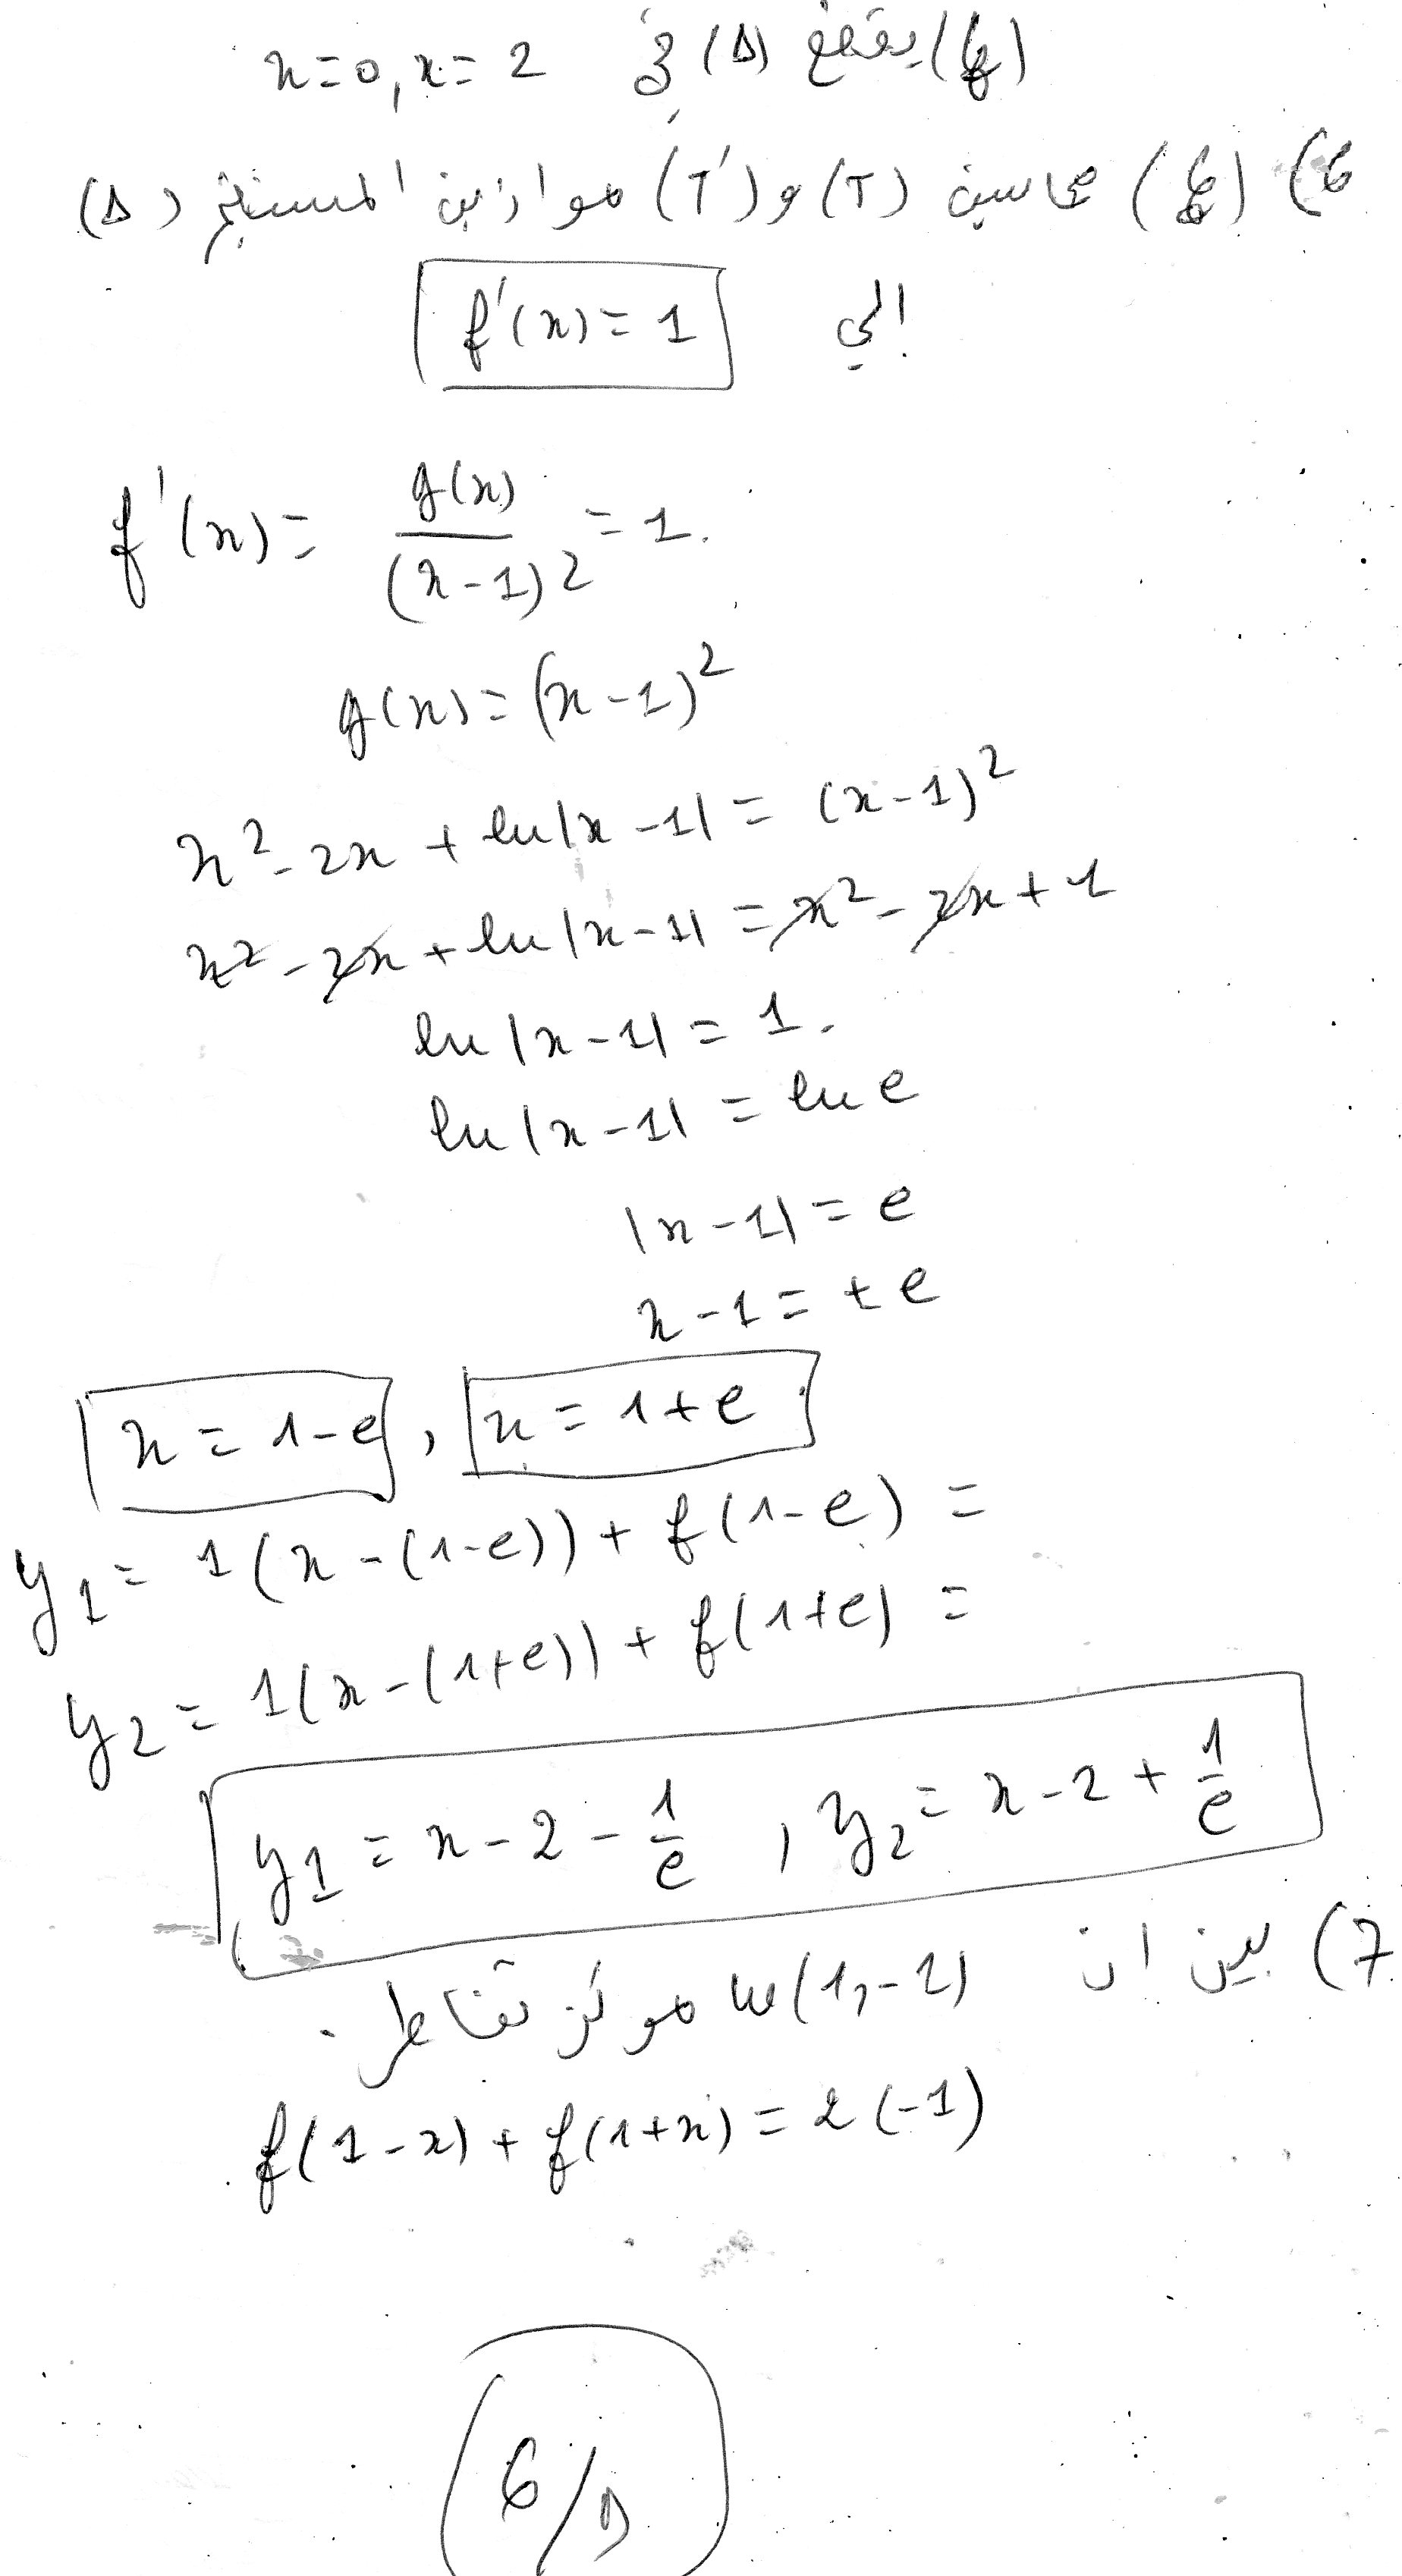 (Cf) يقطع (Δ) في x=0, x=2
6) (Cf) مماسين (T) و (T') موازيين المستقيم (Δ)
اي f'(x) = 1
f'(x) = g(x)/(x-1)2 = 1.
g(x) = (x-1)²
x² - 2x + ln|x-1| = (x-1)²
x² - 2x + ln|x-1| = x² - 2x + 1
ln|x-1| = 1.
ln|x-1| = ln e
|x-1| = e
x-1 = ±e
x = 1-e , x = 1+e
y1 = 1(x-(1-e)) + f(1-e) =
y2 = 1(x-(1+e)) + f(1+e) =
y1 = x-2-1/e , y2 = x-2+1/e
7) بين ان w(1,-1) مركز تناظر.
f(1-x) + f(1+x) = 2(-1)